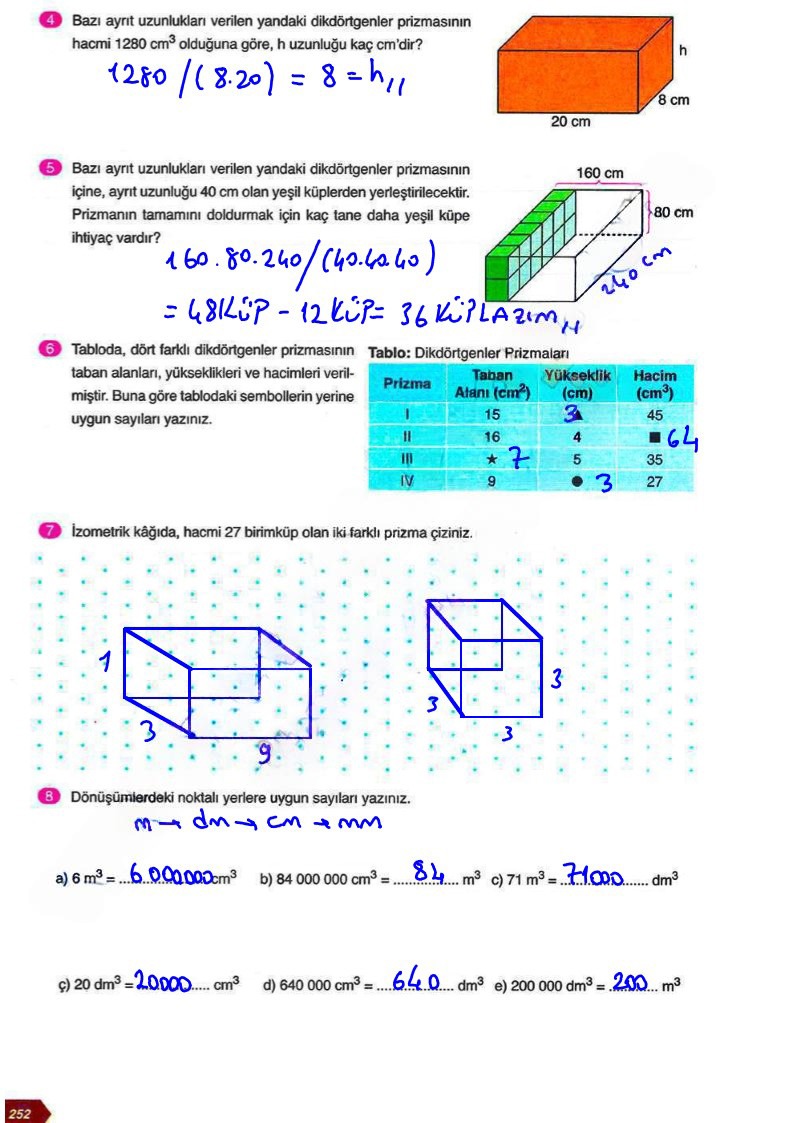 4 Bazı ayrıt uzunlukları verilen yandaki dikdörtgenler prizmasının
hacmi 1280 cm³ olduğuna göre, h uzunluğu kaç cm'dir?
1280 / (8.20) = 8 = h //
h
8 cm
20 cm
5 Bazı ayrıt uzunlukları verilen yandaki dikdörtgenler prizmasının
içine, ayrıt uzunluğu 40 cm olan yeşil küplerden yerleştirilecektir.
Prizmanın tamamını doldurmak için kaç tane daha yeşil küpe
ihtiyaç vardır?
160 cm
80 cm
240 cm
160.80.240/(40.40.40)
= 48KÜP - 12KÜP= 36 KÜP LAZIM //
6 Tabloda, dört farklı dikdörtgenler prizmasının
taban alanları, yükseklikleri ve hacimleri veril-
miştir. Buna göre tablodaki sembollerin yerine
uygun sayıları yazınız.
Tablo: Dikdörtgenler Prizmaları
Prizma Taban Alanı (cm²) Yükseklik (cm) Hacim (cm³)
I 15 3▲ 45
II 16 4 ■ 64
III ★ 7 5 35
IV 9 ● 3 27
7 İzometrik kâğıda, hacmi 27 birimküp olan iki farklı prizma çiziniz.
1
3
9
3
3
3
8 Dönüşümlerdeki noktalı yerlere uygun sayıları yazınız.
m → dm → cm → mm
a) 6 m³ = ...6.000000cm³ b) 84 000 000 cm³ = ....84.... m³ c) 71 m³ = ..71000...... dm³
ç) 20 dm³ = 20000..... cm³ d) 640 000 cm³ = ....640.... dm³ e) 200 000 dm³ = ..200... m³
252